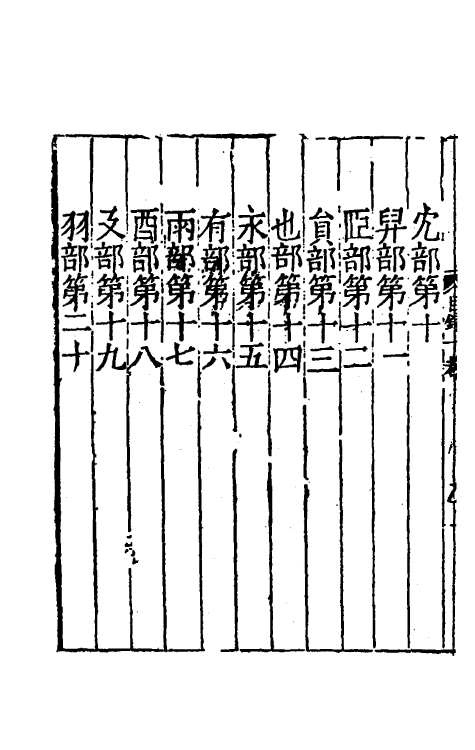 冘部第十
舁部第十一
𦣝部第十二
員部第十三
也部第十四
永部第十五
有部第十六
雨部第十七
酉部第十八
廴部第十九
羽部第二十